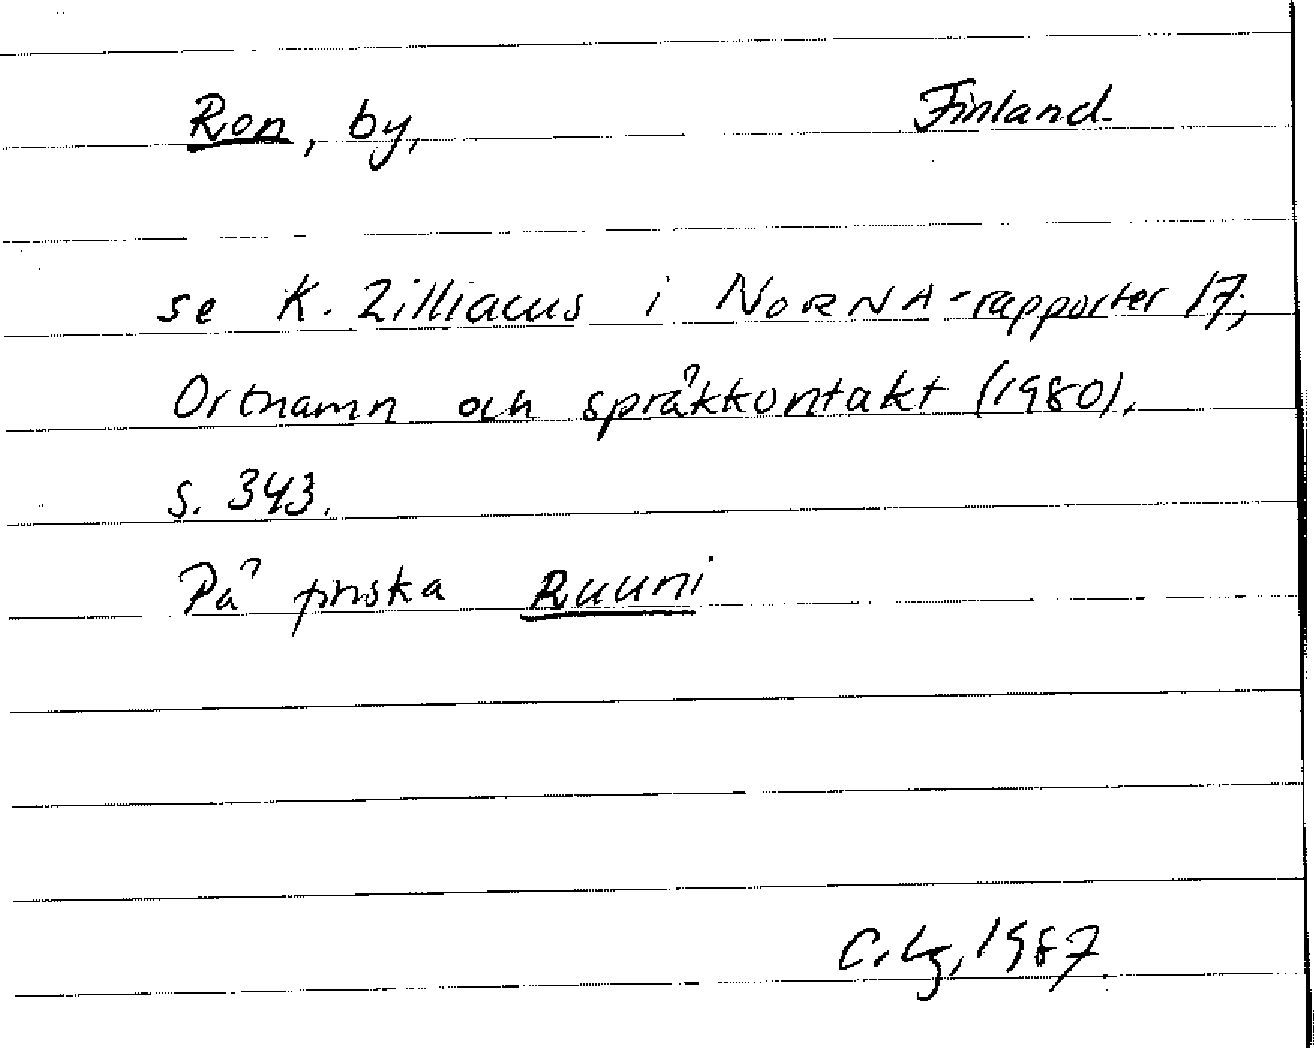 Ron, by, Finland.
se K. Zilliacus i NORNA-rapporter 17;
Ortnamn och språkkontakt (1980),
s. 343.
På finska Ruuni
C. Lg, 1987.